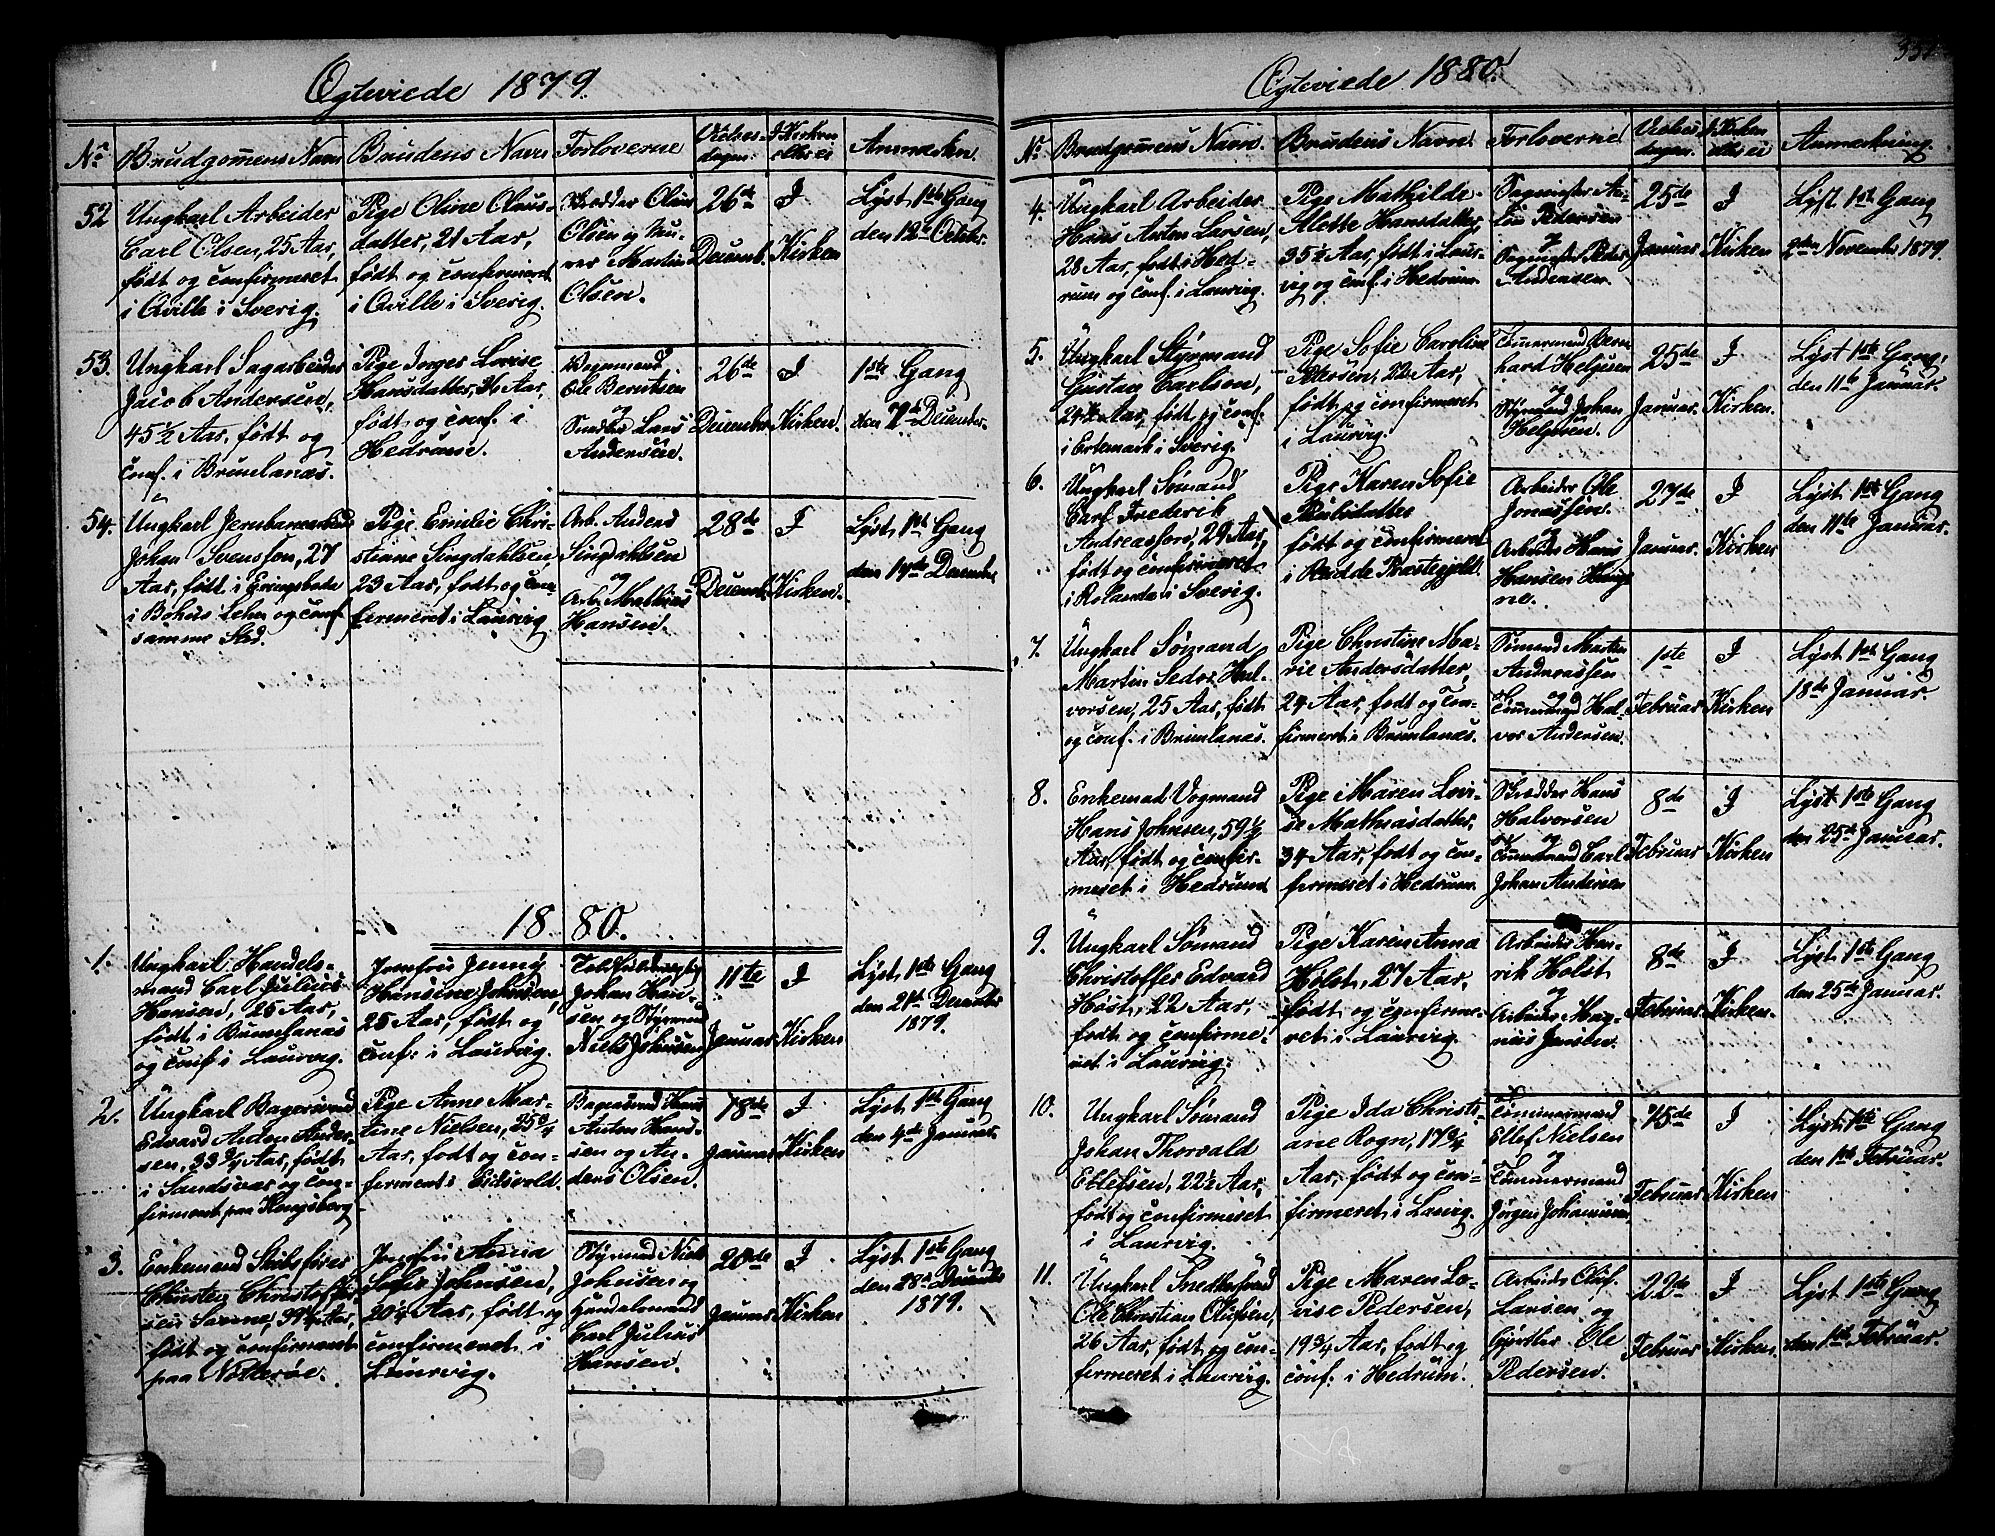 Ægteviede 1879.
No Brudgommens Navn Brudens Navn Forloverne Vielses dagen. I Kirken eller ei Anmærkn.
52 Ungkarl Arbeider
Carl Olsen, 25 Aar,
født og confirmeret
i Qville i Sverig.
Pige Oline Claus-
datter, 21 Aar,
født og confirmeret
i Qville i Sverig.
Skrædder Olius
Olsen og Mu-
rer Martin
Olsen.
26de
Decemb.
I
Kirken
Lyst 1ste Gang
den 12te Octbr.
53. Ungkarl Sagarbeider
Jacob Andersen,
45 1/2 Aar, født og
conf. i Brunlanæs.
Pige Inger Lovise
Hansdatter, 36 Aar,
født og conf. i
Hedrum.
Ole Berntsen
og
Smeder Lars
Andersen.
26de
December
I
Kirken.
1ste Gang
den 7de December.
54. Ungkarl
Johan Svensson, 27
Aar, født i
i Bohus Lehn og conf.
samme Sted.
Pige Emilie Chri-
stiane Singdahlsen,
23 Aar, født og con-
firmeret i Laurvig
Arb. Anders
Singdahlsen
og
Arb. Mathias
Hansen.
28de
Decemb.
I
Kirken.
Lyst 1ste Gang
den 14de Decembr
1880.
1. Ungkarl Handels-
mand Carl Julius
Hansen, 25 Aar,
født i Brunlanæs
og conf. i Laurvig.
Jomfru Jenny
Hansine Johnsen,
25 Aar, født og
conf. i Laurvig.
Johan Han-
sen og Styrmand
Niels Johnsen
11te
Januar
I
Kirken
Lyst 1ste Gang
den 21de December
1879.
2. Ungkarl Bagersvend
Edvard Anton Ander-
sen, 23 3/4 Aar, født
i Sandsvær og con-
firmeret paa Kongsberg
Pige Anne Mar-
tine Nielsen, 35 3/4
Aar, født og con-
firmeret i Eidsvold.
Bagersvend Hans
Anton Hans-
sen og An-
ders Olsen.
18de
Januar
I
Kirken
Lyst 1ste Gang
den 4de Januar.
3. Enkemand Skibsfører
Christen Christoffer-
sen Sørene, 39 3/4 Aar,
født og confirmeret
paa Nøtterøe.
Jomfru Anna
Sofie Johnsen,
20 1/4 Aar, født og
confirmeret i
Laurvig.
Styrmand Niels
Johnsen og
Handelsmand
Carl Julius
Hansen.
20de
Januar
I
Kirken
Lyst 1ste Gang
den 28de December
1879.
Ægteviede 1880.
No Brudgommens Navn. Brudens Navn. Forloverne Vielses dagen. I Kirken eller ei Anmærkning.
4. Ungkarl Arbeider
Hans Anton Larsen,
28 Aar, født i Hed-
rum og conf. i Laurvig.
Pige Mathilde
Alette Hansdatter,
35 1/2 Aar, født i Laur-
vig og conf. i Hedrum.
Sagmester An-
Pedersen
og
Sagmester Peder
Andersen.
25de
Januar
I
Kirken
Lyst 1ste Gang
2den November 1879.
5. Ungkarl Styrmand
Gustav Carlson,
24 1/2 Aar, født og conf.
i Ertemark i Sverig.
Pige Sofie Caroline
Petersen, 22 Aar,
født og confirmeret
i Laurvig.
Tømmermand Bern-
hard Helgesen
og
Styrmand Johan
Helgesen.
25de
Januar.
I
Kirken.
Lyst 1ste Gang
den 11te Januar.
6. Ungkarl Sømand
Carl Frederik
Andreasson, 24 Aar,
født og confirmeret
i Rolanda i Sverig.
Pige Karen Sofie
født og confirmeret
i Præstegjeld.
Arbeider Ole
Jonassen.
og
Arbeider Hans
Hansen Haug-
ne.
27de
Januar
I
Kirken
Lyst 1ste Gang
den 11te Januar.
7. Ungkarl Sømand
Martin Sedor Hal-
vorsen, 25 Aar, født
og conf. i Brunlanæs.
Pige Christine Ma-
rie Andersdatter,
24 Aar, født og con-
firmeret i Brunlanæs.
Sømand Martin
Andreassen
og
Tømmermand Hal-
vor Andersen.
1ste
Februar
I
Kirken
Lyst 1ste Gang
18de Januar.
8. Enkemand Vogmand
Hans Johnsen, 59 1/2
Aar, født og confir-
meret i Hedrum
Pige Maren Lovi-
se Mathiasdatter,
34 Aar, født og con-
firmeret i Hedrum
Skrædder Hans
Halvorsen
og
Tømmermand Carl
Johan Andersen
8de
Februar
I
Kirken
Lyst 1ste Gang
den 25de Januar.
9. Ungkarl Sømand
Christoffer Edvard
Høst, 22 Aar,
født og confirme-
ret i Laurvig.
Pige Karen Anna
Holst, 27 Aar,
født og confirme-
ret i Laurvig.
Arbeider Hen-
rik Holst
og
Arbeider Mag-
nus Jensen.
8de
Februar
I
Kirken.
Lyst 1ste Gang
den 25de Januar.
10. Ungkarl Sømand
Johan Thorvald
Ellefsen, 22 1/2 Aar,
født og confirmeret
i Laurvig.
Pige Ida Christi-
ane Rogn, 17 3/4
Aar, født og con-
firmeret i Laurvig.
Tømmermand
Ellef Nielsen
og
Tømmermand
Jørgen Johannesen,
15de
Februar
I
Kirken
Lyst 1ste Gang
den 1ste Februar.
11. Ungkarl Snedkersvend
Ole Christian Olufsen,
26 Aar, født og con-
firmeret i Laurvig.
Pige Maren Lo-
vise Pedersen,
19 3/4 Aar, født og
conf. i Hedrum.
Arbeider Oluf
Larsen og
Gjørtler Ole
Pedersen.
22de
Februar
I
Kirken.
Lyst 1ste Gang
den 1ste Februar.